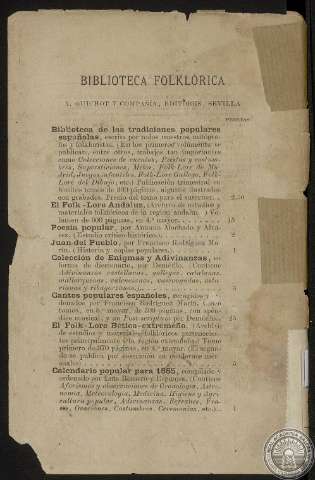 BIBLIOTECA FOLKLÓRICA
A. GUICHOT Y COMPAÑÍA, EDITORES, SEVILLA
PESETAS
Biblioteca de las tradiciones populares
españolas, escrita por todos nuestros mitógra-
fos y folkloristas. (En los primeros volúmenes se
publican, entre otros, trabajos tan importantes
como Colecciones de cuentos, Fiestas y costum-
bres, Supersticiones, Mitos, Folk-Lore de Ma-
drid, Juegos infantiles, Folk-Lore Gallego, Folk-
Lore del Dibujo, etc.) Publicación trimestral en
bonitos tomos de 300 páginas, algunos ilustrados
con grabados. Precio del tomo para el suscritor. . 2.50
El Folk-Lore Andaluz, (Archivo de estudios y
materiales folklóricos de la región andaluza) Vo-
lumen de 600 páginas, en 4.º mayor. . . 15
Poesía popular, por Antonio Machado y Alva-
rez. (Estudio crítico-histórico). . 2
Juan del Pueblo, por Francisco Rodríguez Ma-
rín. (Historia y coplas populares.) . 1
Colección de Enigmas y Adivinanzas, en
forma de diccionario, por Demófilo. (Contiene
Adivinanzas castellanas, gallegas, catalanas,
mallorquinas, valencianas, vascongadas, astu-
rianas y ribagorzanas.). . 5
Cantos populares españoles, recogidos y
ordenados por Francisco Rodríguez Marín. Cinco
tomos, en 8.º mayor, de 500 páginas, con apén-
dice musical, y un Post-scriptum por Demófilo. 25
El Folk-Lore Bético-extremeño. (Archivo
de estudios y materiales folklóricos pertenecien-
tes principalmente á la región extremeña.) Tomo
primero de 370 páginas, en 4.º mayor. (El segun-
do se publica por suscrición en cuadernos tri-
mestrales) . 5
Calendario popular para 1885, compilado y
ordenado por Luis Romero y Espinosa. (Contiene
Aforismos y observaciones de Cronología, Astro-
nomía, Meteorología, Medicina, Higiene y Agri-
cultura popular, Adivinanzas, Refranes, Fra-
ses, Oraciones, Costumbres, Ceremonias, etc.) . . 1